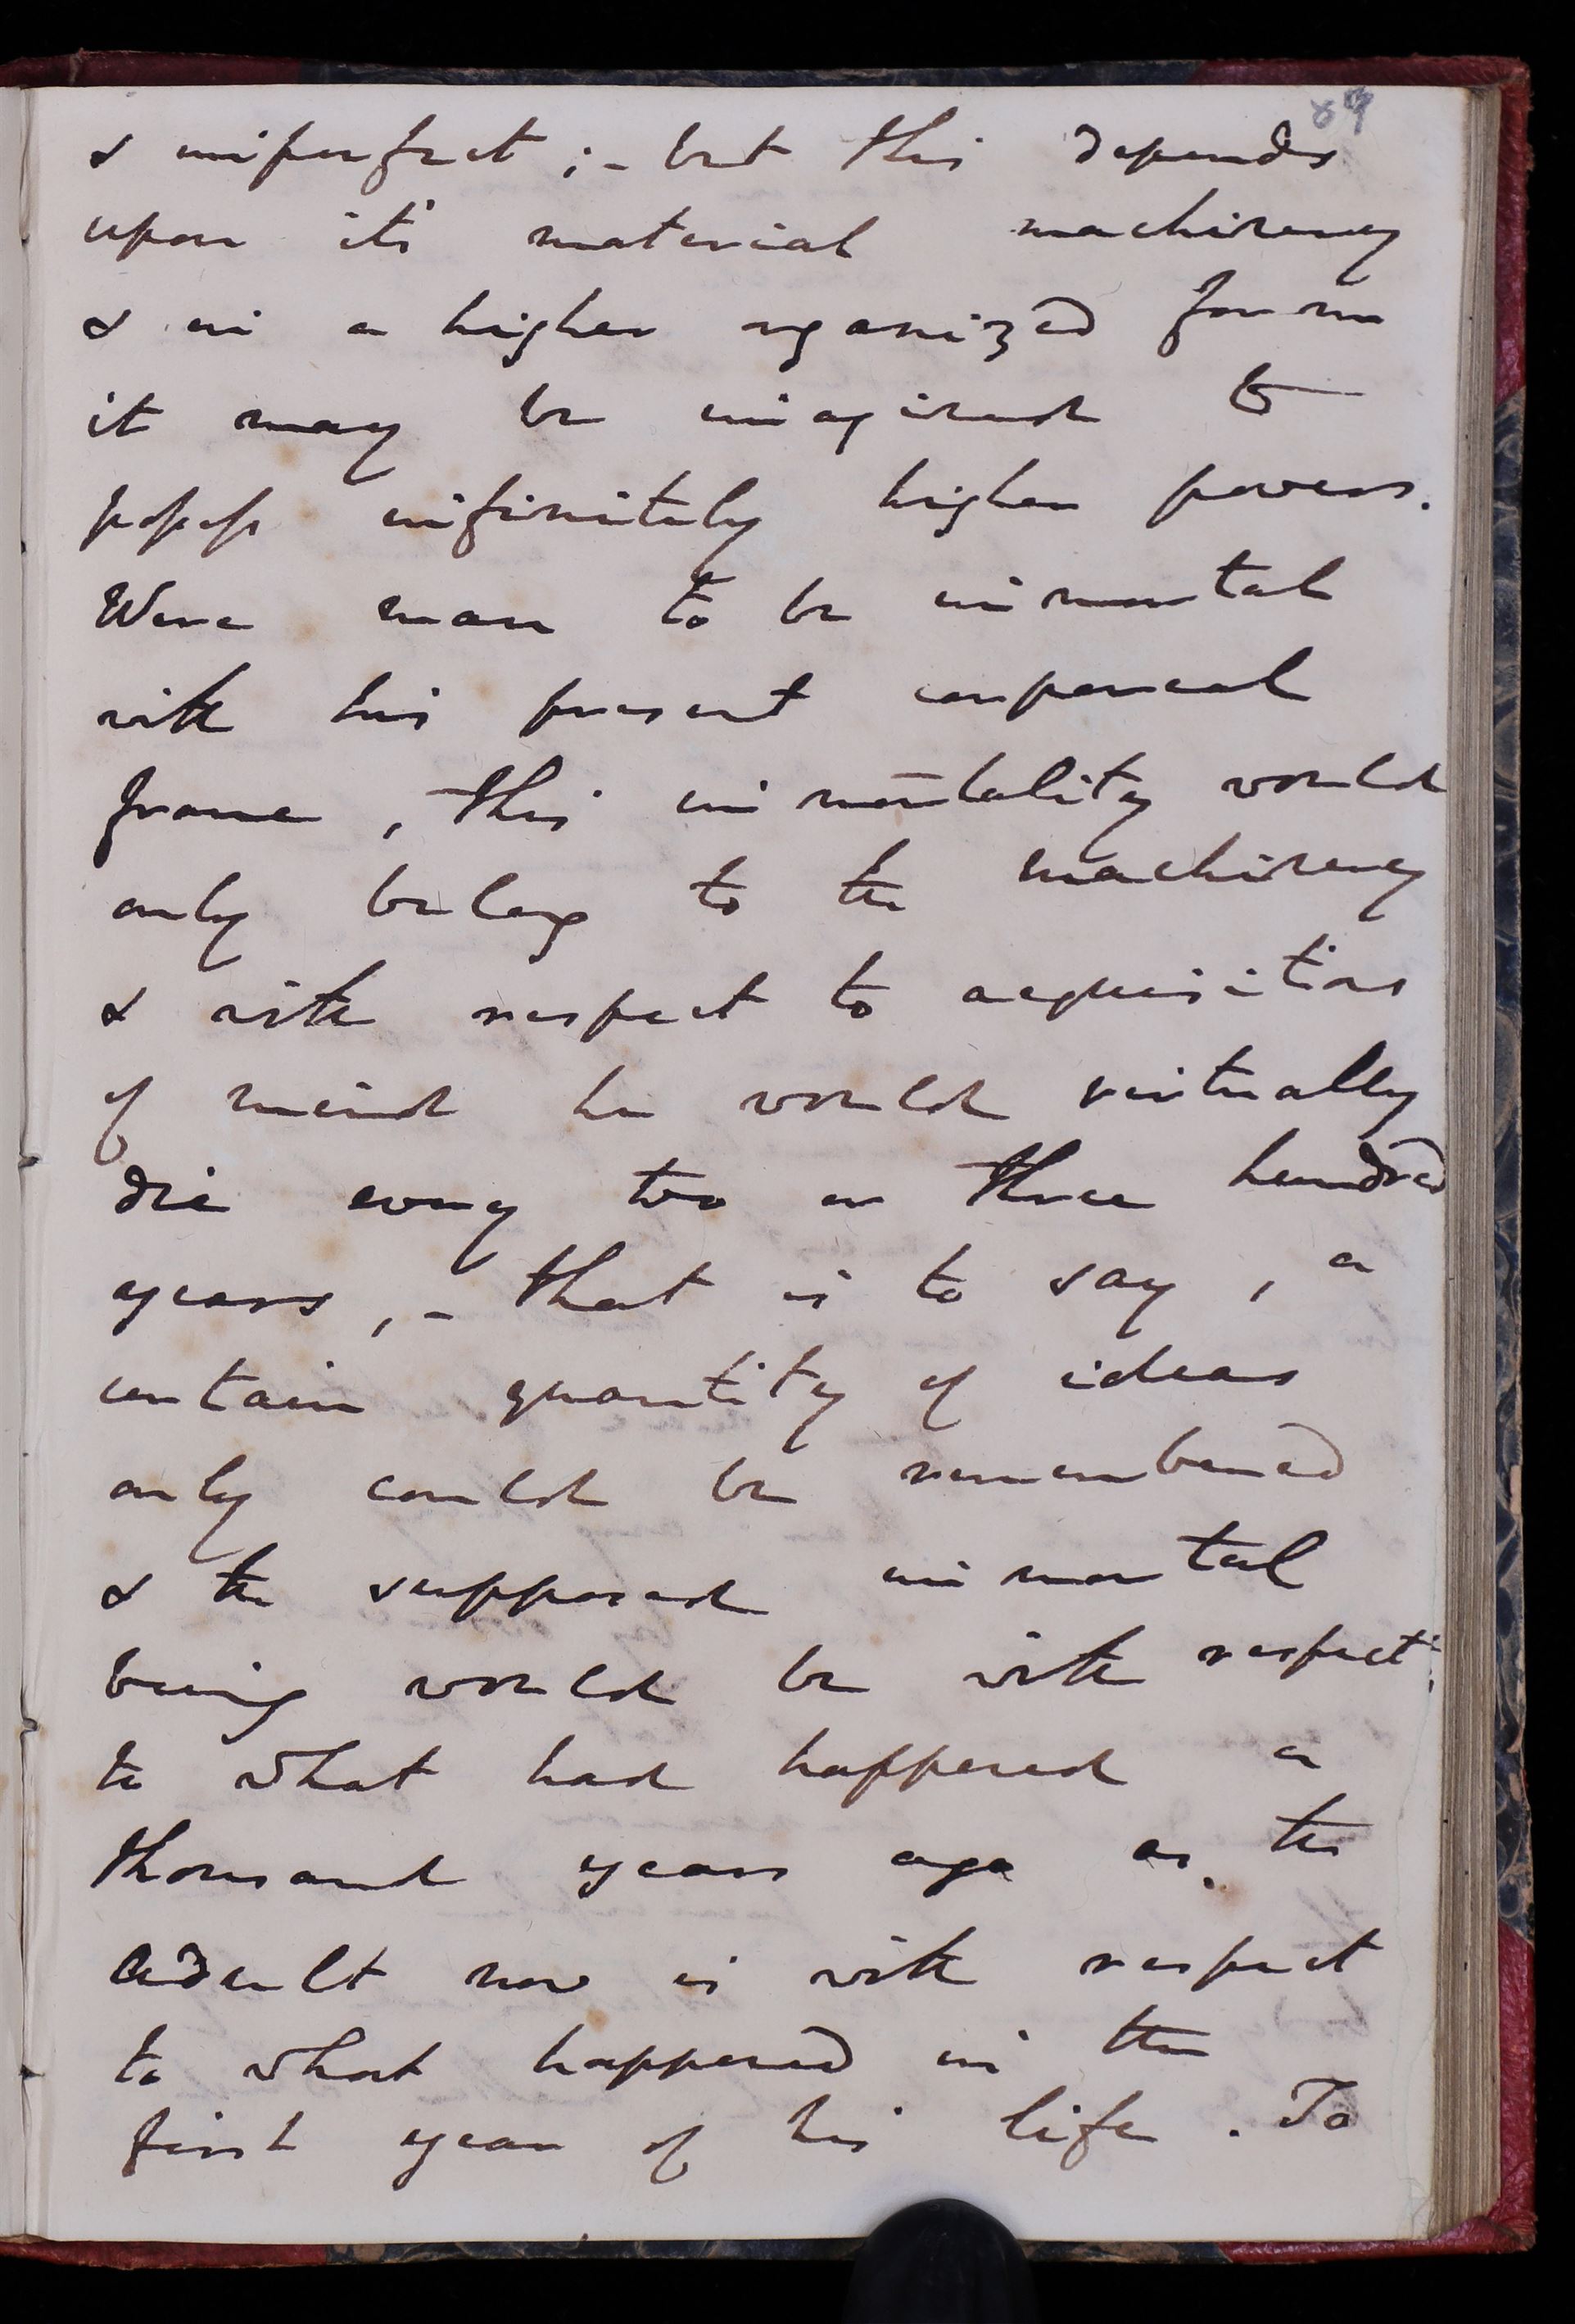 89
& imperfect ;- but this depends
upon it's material machinery
& in a higher organized form
it may be imagined to
possess infinitely higher powers.
Were man to be immortal
with his present corporeal
frame, this immortality would
only belong to the machinery
& with respect to acquisitions
of mind he would virtually
die every two or three hundred
years,- that is to say, a
certain quantity of ideas
only could be remembered
& the supposed immortal
being would be with respect
to what had happened a
thousand years ago as the
adult now is with respect
to what happened in the
first year of his life. To